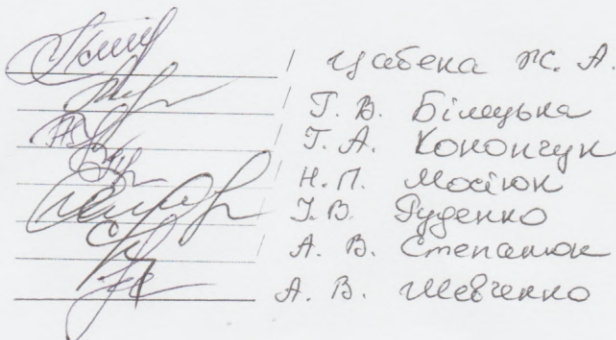 / Цабека Ж. А.
/ Г. В. Білецька
/ Т. А. Конончук
/ Н. П. Мосіюк
/ І. В. Руденко
/ А. В. Степанюк
А. В. Шевченко